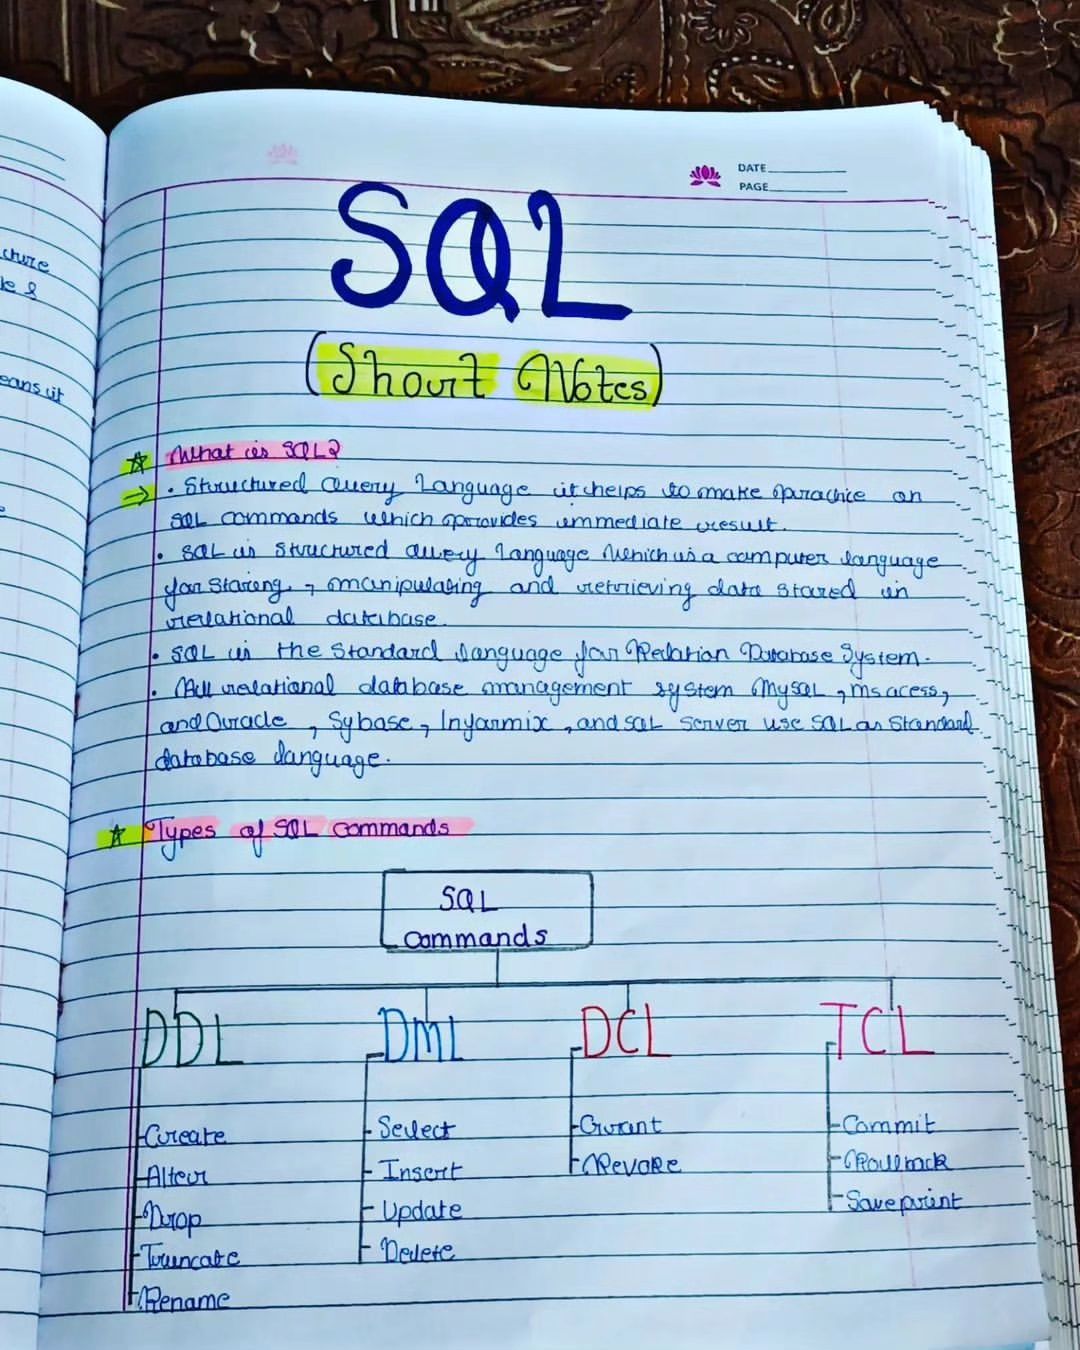 cture
le &
eans it
DATE
PAGE
SQL
(Short Notes)
What is SQL?
• Structured Query Language it helps to make practice on
SQL commands which provides immediate result.
• SQL is Structured Query Language which is a computer language
for Storing, manipulating and retrieving data stored in
relational database.
• SQL is the Standard language for Relation Database System.
• All relational database management system MySQL, ms acess,
and Oracle, Sybase, Informix, and SQL Server use SQL as Standard
database language.
Types of SQL commands
SQL
commands
DDL DML DCL TCL
Create Select Grant Commit
Alter Insert Revoke Rollback
Drop Update Savepoint
Truncate Delete
Rename